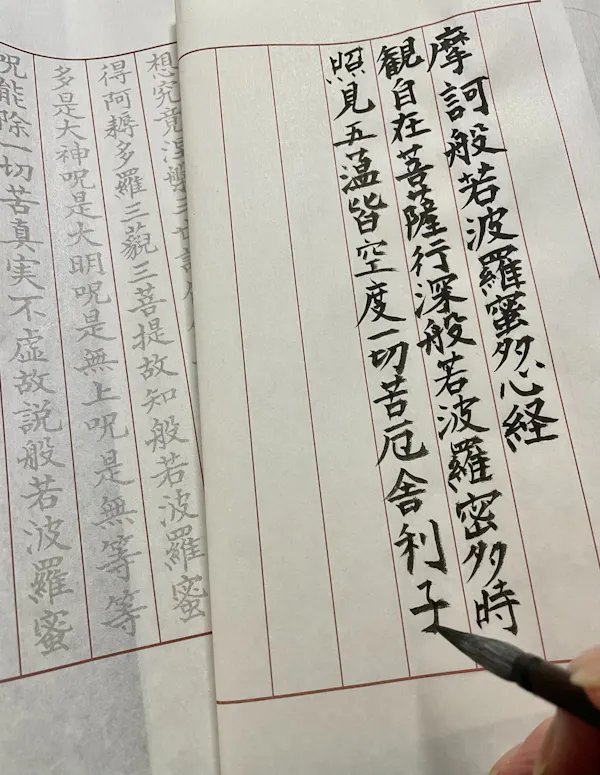 摩訶般若波羅蜜多心経
観自在菩薩行深般若波羅密多時
照見五薀皆空度一切苦厄舎利子
想究竟涅槃三世
得阿耨多羅三藐三菩提故知般若波羅蜜
多是大神呪是大明呪是無上呪是無等等
呪能除一切苦真実不虚故説般若波羅蜜